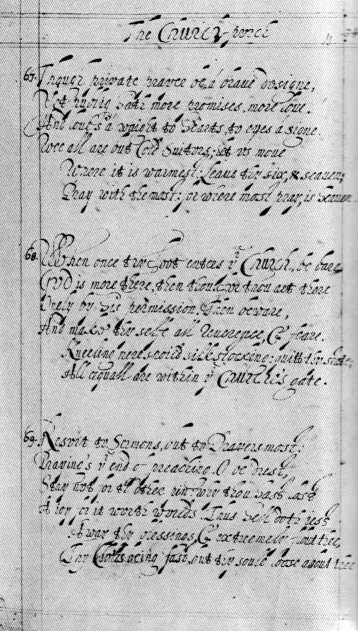 The Church-porch
67. Though private prayer be a brave designe,
Yet publiq hath more promises, more love.
And love's a weight to hearts, to eyes a signe.
Wee all are but cold suitors; let us move
Where it is warmest: Leave thy six, & seaven,
Pray with the most: for where most pray, is heaven
68. When once thy foot enters ye Church, be bare,
God is more there, then thou: for thou art there
Onely by his permission. Then beware,
And make thy selfe all Reverence, & feare.
Kneeling nere spoild silk stocking: quitt thy state
All equall are within ye Church's gate.
69. Resort to Sermons, but to Prayers most:
Praying's ye end of preaching. O be drest,
Stay not for th' other pin: why thou hast lost
A Joy for it worth worlds. Thus Hell doth jest
Away thy blessings, & extreemely flout thee,
Thy Cloths being fast, but thy soule loose about thee